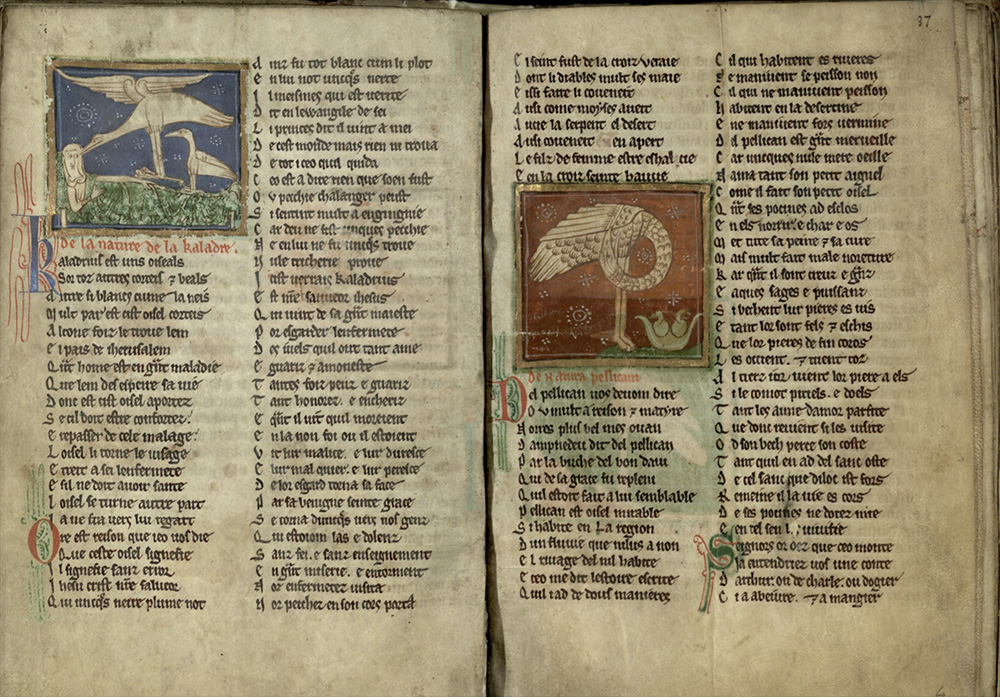 de la nature de la kaladre.
Kaladrius est uns oiseals
Sor toz autres corteis & beals
Autre si blancs cume la neis
Mult par est cist oisel corteis
Alcone foiz le trove lem
El pais de iherusalem
Qant home est en grant maladie
Que lem desespeire sa vie
Donc est cist oisel aportez
Se cil doit estre confortez
E repasser de cele malage
Loisel li torne le visage
E treit a sei lenfermete
E sil ne doit avoir sante
Loisel se turne autre part
Ja ne fra vers lui regart
Ore est reison que ieo vos die
Que ceste oisel signefie
Il signefie sanz error
Ihesu crist nostre salveor
Qui uncques neire plume not
Ainz fu tot blanc cum li plot
En lui not uncques nerte
Il meismes qui est verite
Dit en lewangile de sei
Li princes dit il vint a mei
De cest monde mais rien ni trova
De tot iceo quil quida
Ceo est a dire rien que soen fust
Ou pecchie chalanger peust
Si sentint mult a engingnie
Car deu ne fist unques pecchie
Ne en lui ne fu uncques trove
Nule tricherie prove
Cist verrais kaladrius
Est nostre salveor ihesus
Qui vint de sa grant maieste
Por esgarder lenfermete
Des iuels quil out tant ame
E guariz & amoneste
Tantes foiz peuz & guariz
Tant honorez e encheriz
E quant il vit quil moreient
En la non foi ou il estoient
Vit lur malice e lur duresce
Lur mal quier e lur peresce
De lor esgard torna sa face
Par sa benigne seinte grace
Se torna duncques vers nos genz
Qui estoium las e dolenz
Sanz fei e sanz enseignement
En grant miserie e en torment
Nor enfermetez visita
Nor pecchez en son cors porta
37
Ci seint fust de la croiz veraie
Dont li diables mult ses maie
Eissi faire li coveneit
Ausi come moyses aveit
Auce la serpent el desert
Ausi coveneit en apert
Le filz de femme estre eshalcie
E en la croiz seinte haucie
de natura pellicani
Del pellican vos devom dire
Ou mult a reison & matyre
Nomes plus bel mes ouan
Dampnedeu dit del pellican
Par la buche del bon davi
Qui de sa grace fu repleni
Quil estoit fait a lui semblable
Pellican est oisel muable
Si habite en la region
Dun fluvie que nilus a non
El rivage del nil habite
Ceo me dit lestoire escrite
Quil i ad de dous manieres
Cil qui habitent es rivieres
Ne maniuent se peisson non
Cil qui ne maniuent peisson
Habitent en la desertine
E ne maniuent fors vermine
Del pellican est grant merveille
Car uncques nule mere oeille
Nama tant son petit aignel
Come il fait son petit oisel
Qant ses pocines ad esclos
En els norrir e char e os
Met tute sa peine & sa cure
Mais mult fait male norreture
Kar quant il sont creuz e granz
E aques sages e puissanz
Si bechent lur pieres es vis
E tant lor sont fels & eschis
Que lor pieres de fin coroz
Les occient & tuent toz
Al tierz ior vient lor piere a els
Si le conoit pitiels e doels
Tant les aime damor parfite
Que donc revient si les visite
O son bech perce son coste
Tant quil en ad del sanc oste
De cel sanc que diloc est fors
Remeine il la vie es cors
De ses pocines nel dotez nite
E en tel sen les vivifie
Seignors or oez que ceo monte
Ia entendriez vos une conte
Darthur ou de charle ou dogier
Ci a abeivre & a mangier